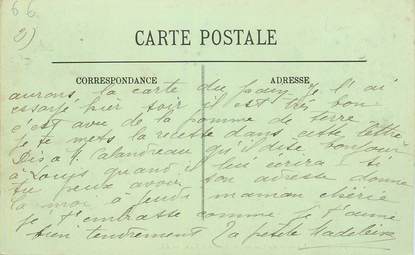 66
2)
CARTE POSTALE
CORRESPONDANCE
ADRESSE
aurons la carte du je l'ai
essayé hier soir il est très bon
c'est avec de la pomme de terre
je te mets la recette dans cette lettre
Dis à qu'il dise bonjour
à Louis quand il lui écrira si
tu peux avoir son adresse donne
la moi à jeudi maman chérie
je t'embrasse comme je t'aime
bien tendrement Ta petite Madeleine